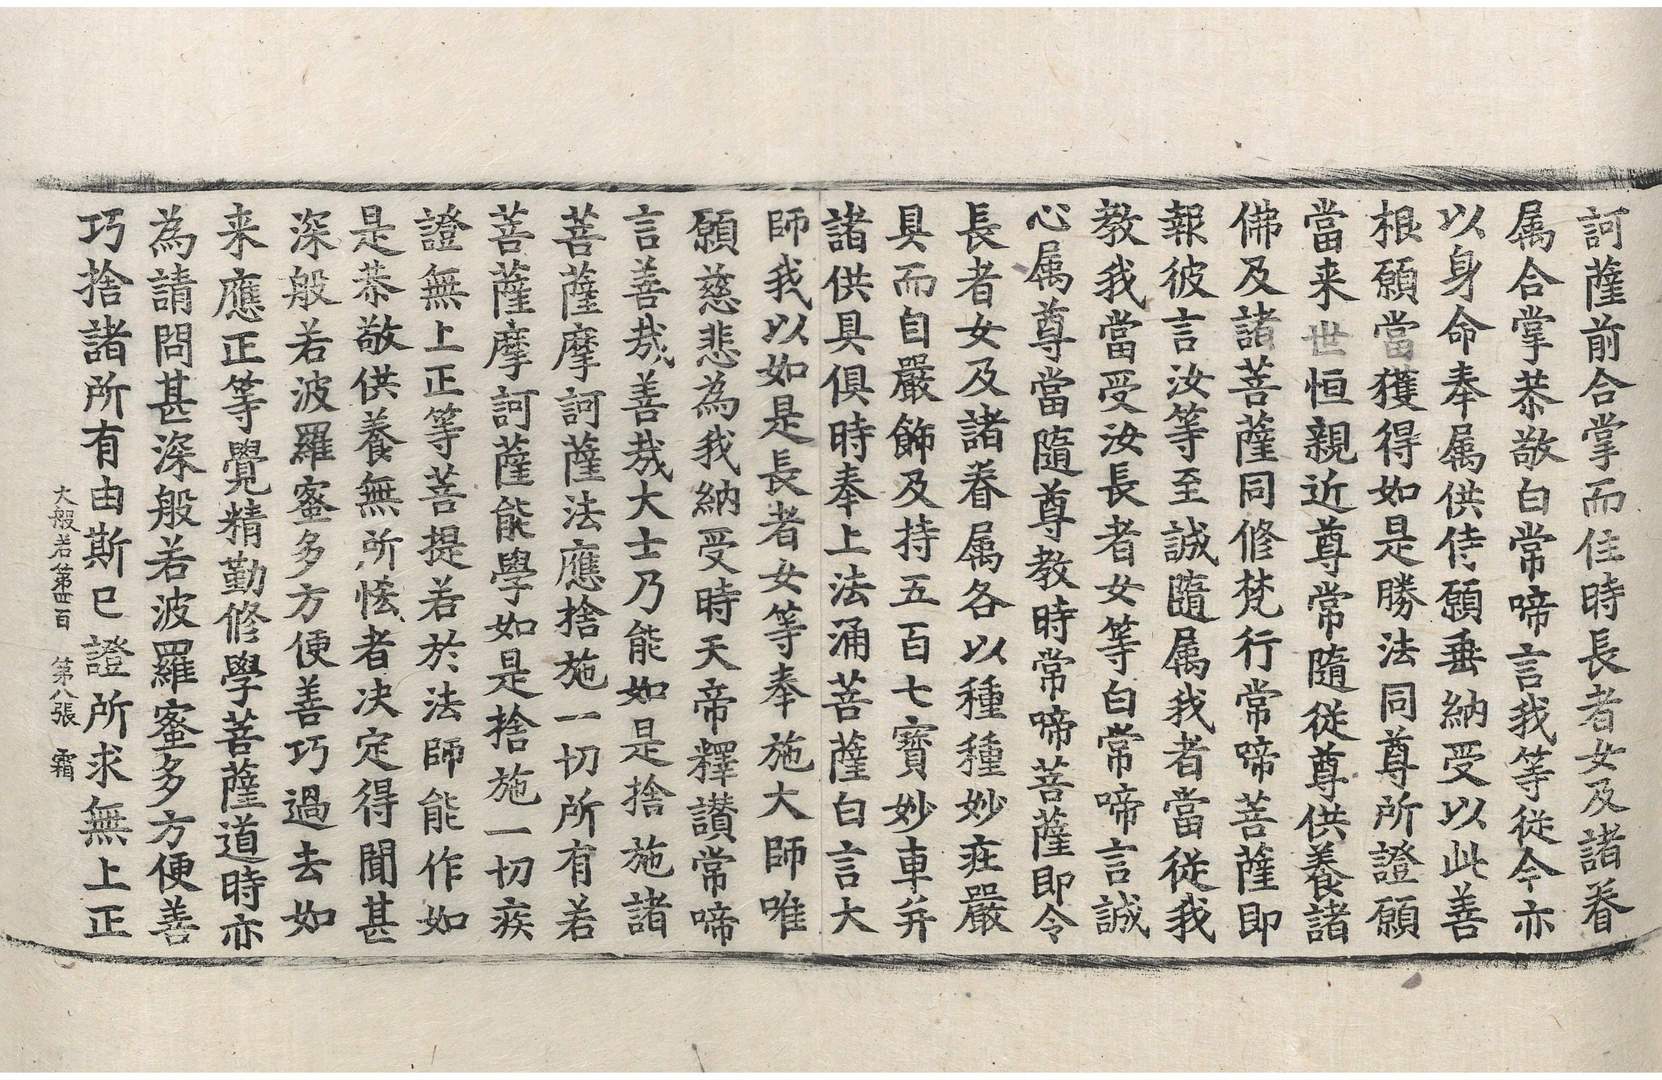 訶薩前合掌而住時長者女及諸眷
属合掌恭敬白常啼言我等従今亦
以身命奉属供侍願垂納受以此善
根願當獲得如是勝法同尊所證願
當来世恒親近尊常隨従尊供養諸
佛及諸菩薩同修梵行常啼菩薩即
報彼言汝等至誠隨属我者當従我
教我當受汝長者女等白常啼言誠
心属尊當隨尊教時常啼菩薩即令
長者女及諸眷属各以種種妙莊嚴
具而自嚴飾及持五百七寶妙車并
諸供具俱時奉上法涌菩薩白言大
師我以如是長者女等奉施大師唯
願慈悲為我納受時天帝釋讃常啼
言善哉善哉大士乃能如是捨施諸
菩薩摩訶薩法應捨施一切所有若
菩薩摩訶薩能學如是捨施一切疾
證無上正等菩提若於法師能作如
是恭敬供養無所悋者决定得聞甚
深般若波羅蜜多方便善巧過去如
来應正等覺精勤修學菩薩道時亦
為請問甚深般若波羅蜜多方便善
巧捨諸所有由斯已證所求無上正
大般若第四百 第八張 霜